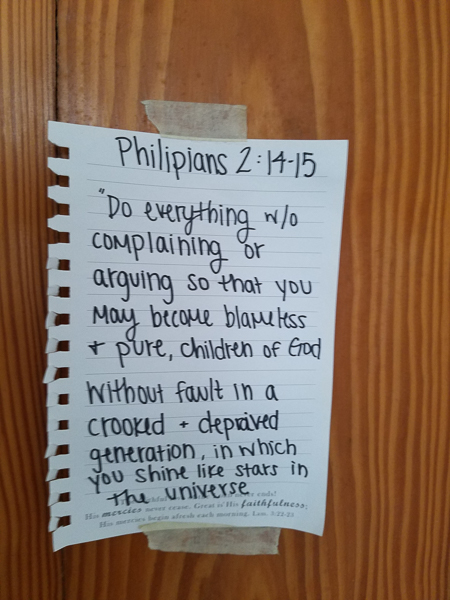 Philipians 2:14-15
"Do everything w/o
complaining or
arguing so that you
may become blameless
+ pure, children of God
without fault in a
crooked + depraved
generation, in which
you shine like stars in
the universe
ends!
His mercies never cease. Great is His faithfulness;
His mercies begin afresh each morning. Lam. 3:22-23